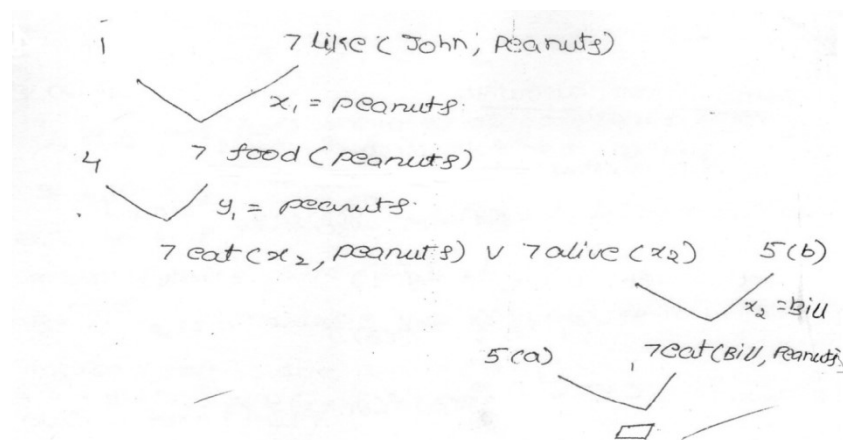 1 7 Like ( John, Peanuts)
x₁ = peanuts.
4 7 food (peanuts)
y₁ = peanuts.
7 eat (x₂, peanuts) v 7 alive (x₂) 5(b)
x₂ = Bill
5(a) 7 eat (Bill, Peanuts